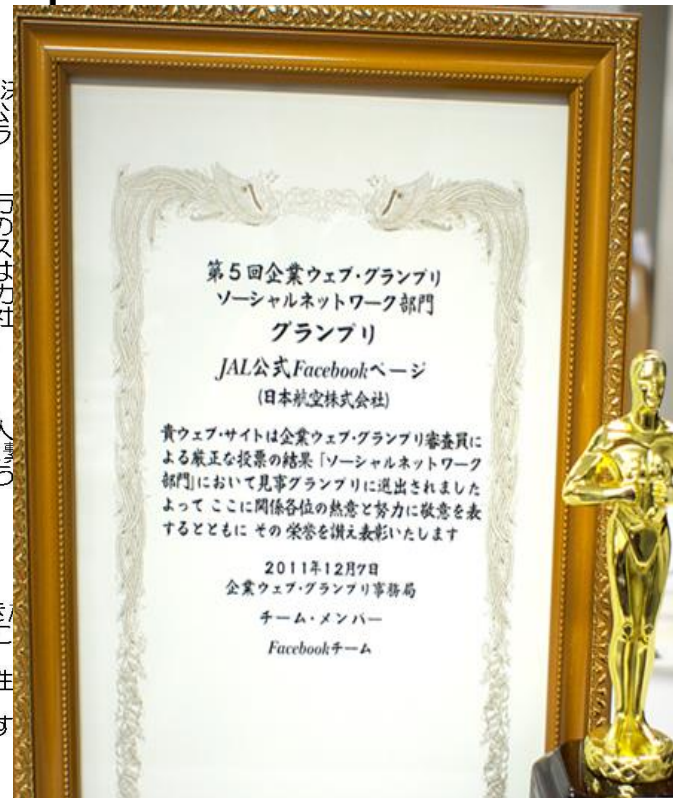 第5回企業ウェブ・グランプリ
ソーシャルネットワーク部門
グランプリ
JAL公式Facebookページ
(日本航空株式会社)
貴ウェブ・サイトは企業ウェブ・グランプリ審査員に
よる厳正な投票の結果「ソーシャルネットワーク
部門」において見事グランプリに選出されました
よって ここに関係各位の熱意と努力に敬意を表
するとともに その栄誉を讃え表彰いたします
2011年12月7日
企業ウェブ・グランプリ事務局
チーム・メンバー
Facebookチーム